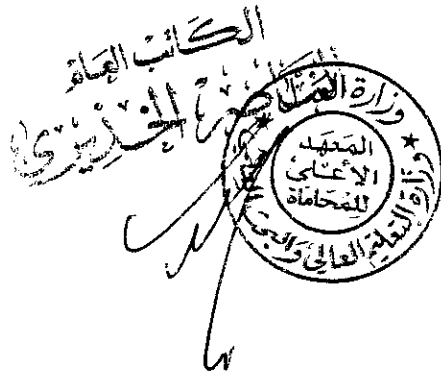 الكاتب العام
المنصور الخذيري
وزارة العدل
المعهد
الأعلى
للمحاماة
وزارة التعليم العالي والبحث